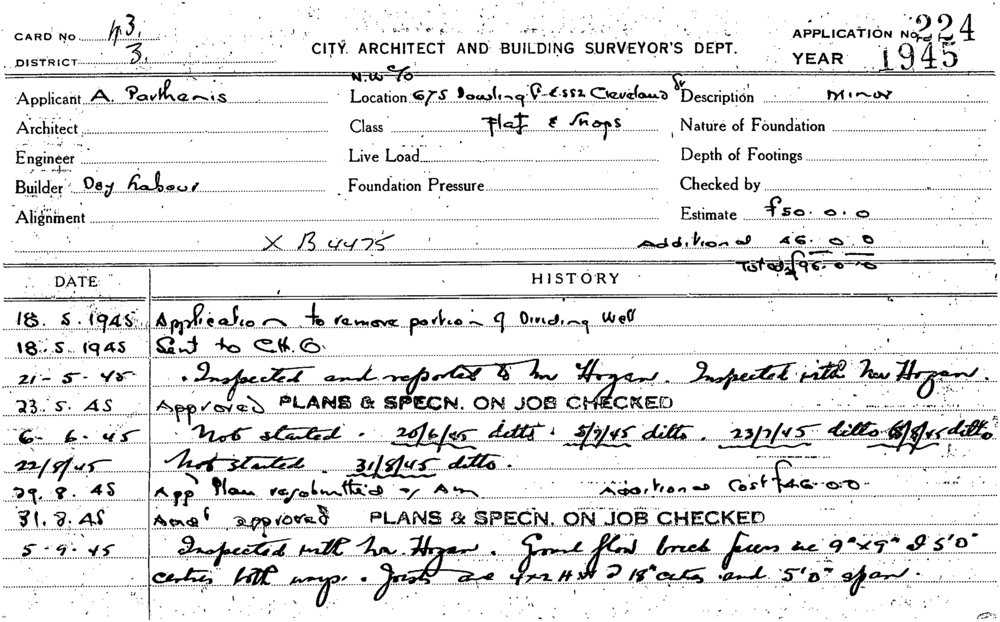 CARD NO 43/3
DISTRICT 3.
CITY ARCHITECT AND BUILDING SURVEYOR'S DEPT.
APPLICATION No. 224
YEAR 1945
N.W C/o
Applicant A. Parthenis
Location 675 Dowling St & 552 Cleveland St
Description Minor
Architect
Class Flat & Shops
Nature of Foundation
Engineer
Live Load
Depth of Footings
Builder Day Labour
Foundation Pressure
Checked by
Alignment
Estimate £50.0.0
X B 4475
Additional 46.0.0
Total £96.0.0
DATE HISTORY
18.5.1945 Application to remove portion of Dividing Wall
18.5.1945 Sent to C.H.O.
21-5-45 Inspected and reported to Mr Hogan. Inspected with Mr Hogan.
23.5.45 Approved PLANS & SPECN. ON JOB CHECKED
6-6-45 Not started. 20/6/45 ditto. 5/7/45 ditto. 23/7/45 ditto 8/8/45 ditto
22/8/45 Not started. 31/8/45 ditto.
29.8.45 App Plan resubmitted Additional Cost £46.0.0.
31.8.45 approved PLANS & SPECN. ON JOB CHECKED
5-9-45 Inspected with Mr. Hogan. Ground floor brick piers are 9"x9" @ 5'0"
centres both ways. Joists are 4x2 HW @ 18" ctrs and 5'0" span.